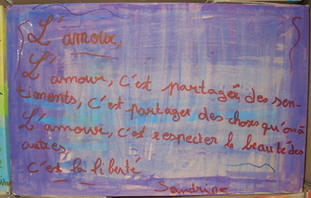 L'amour,
L'amour, c'est partager des sen-
timents, c'est partager des choses qu'on a
L'amour, c'est respecter la beauté des
autres,
C'est la liberté
Sandrine